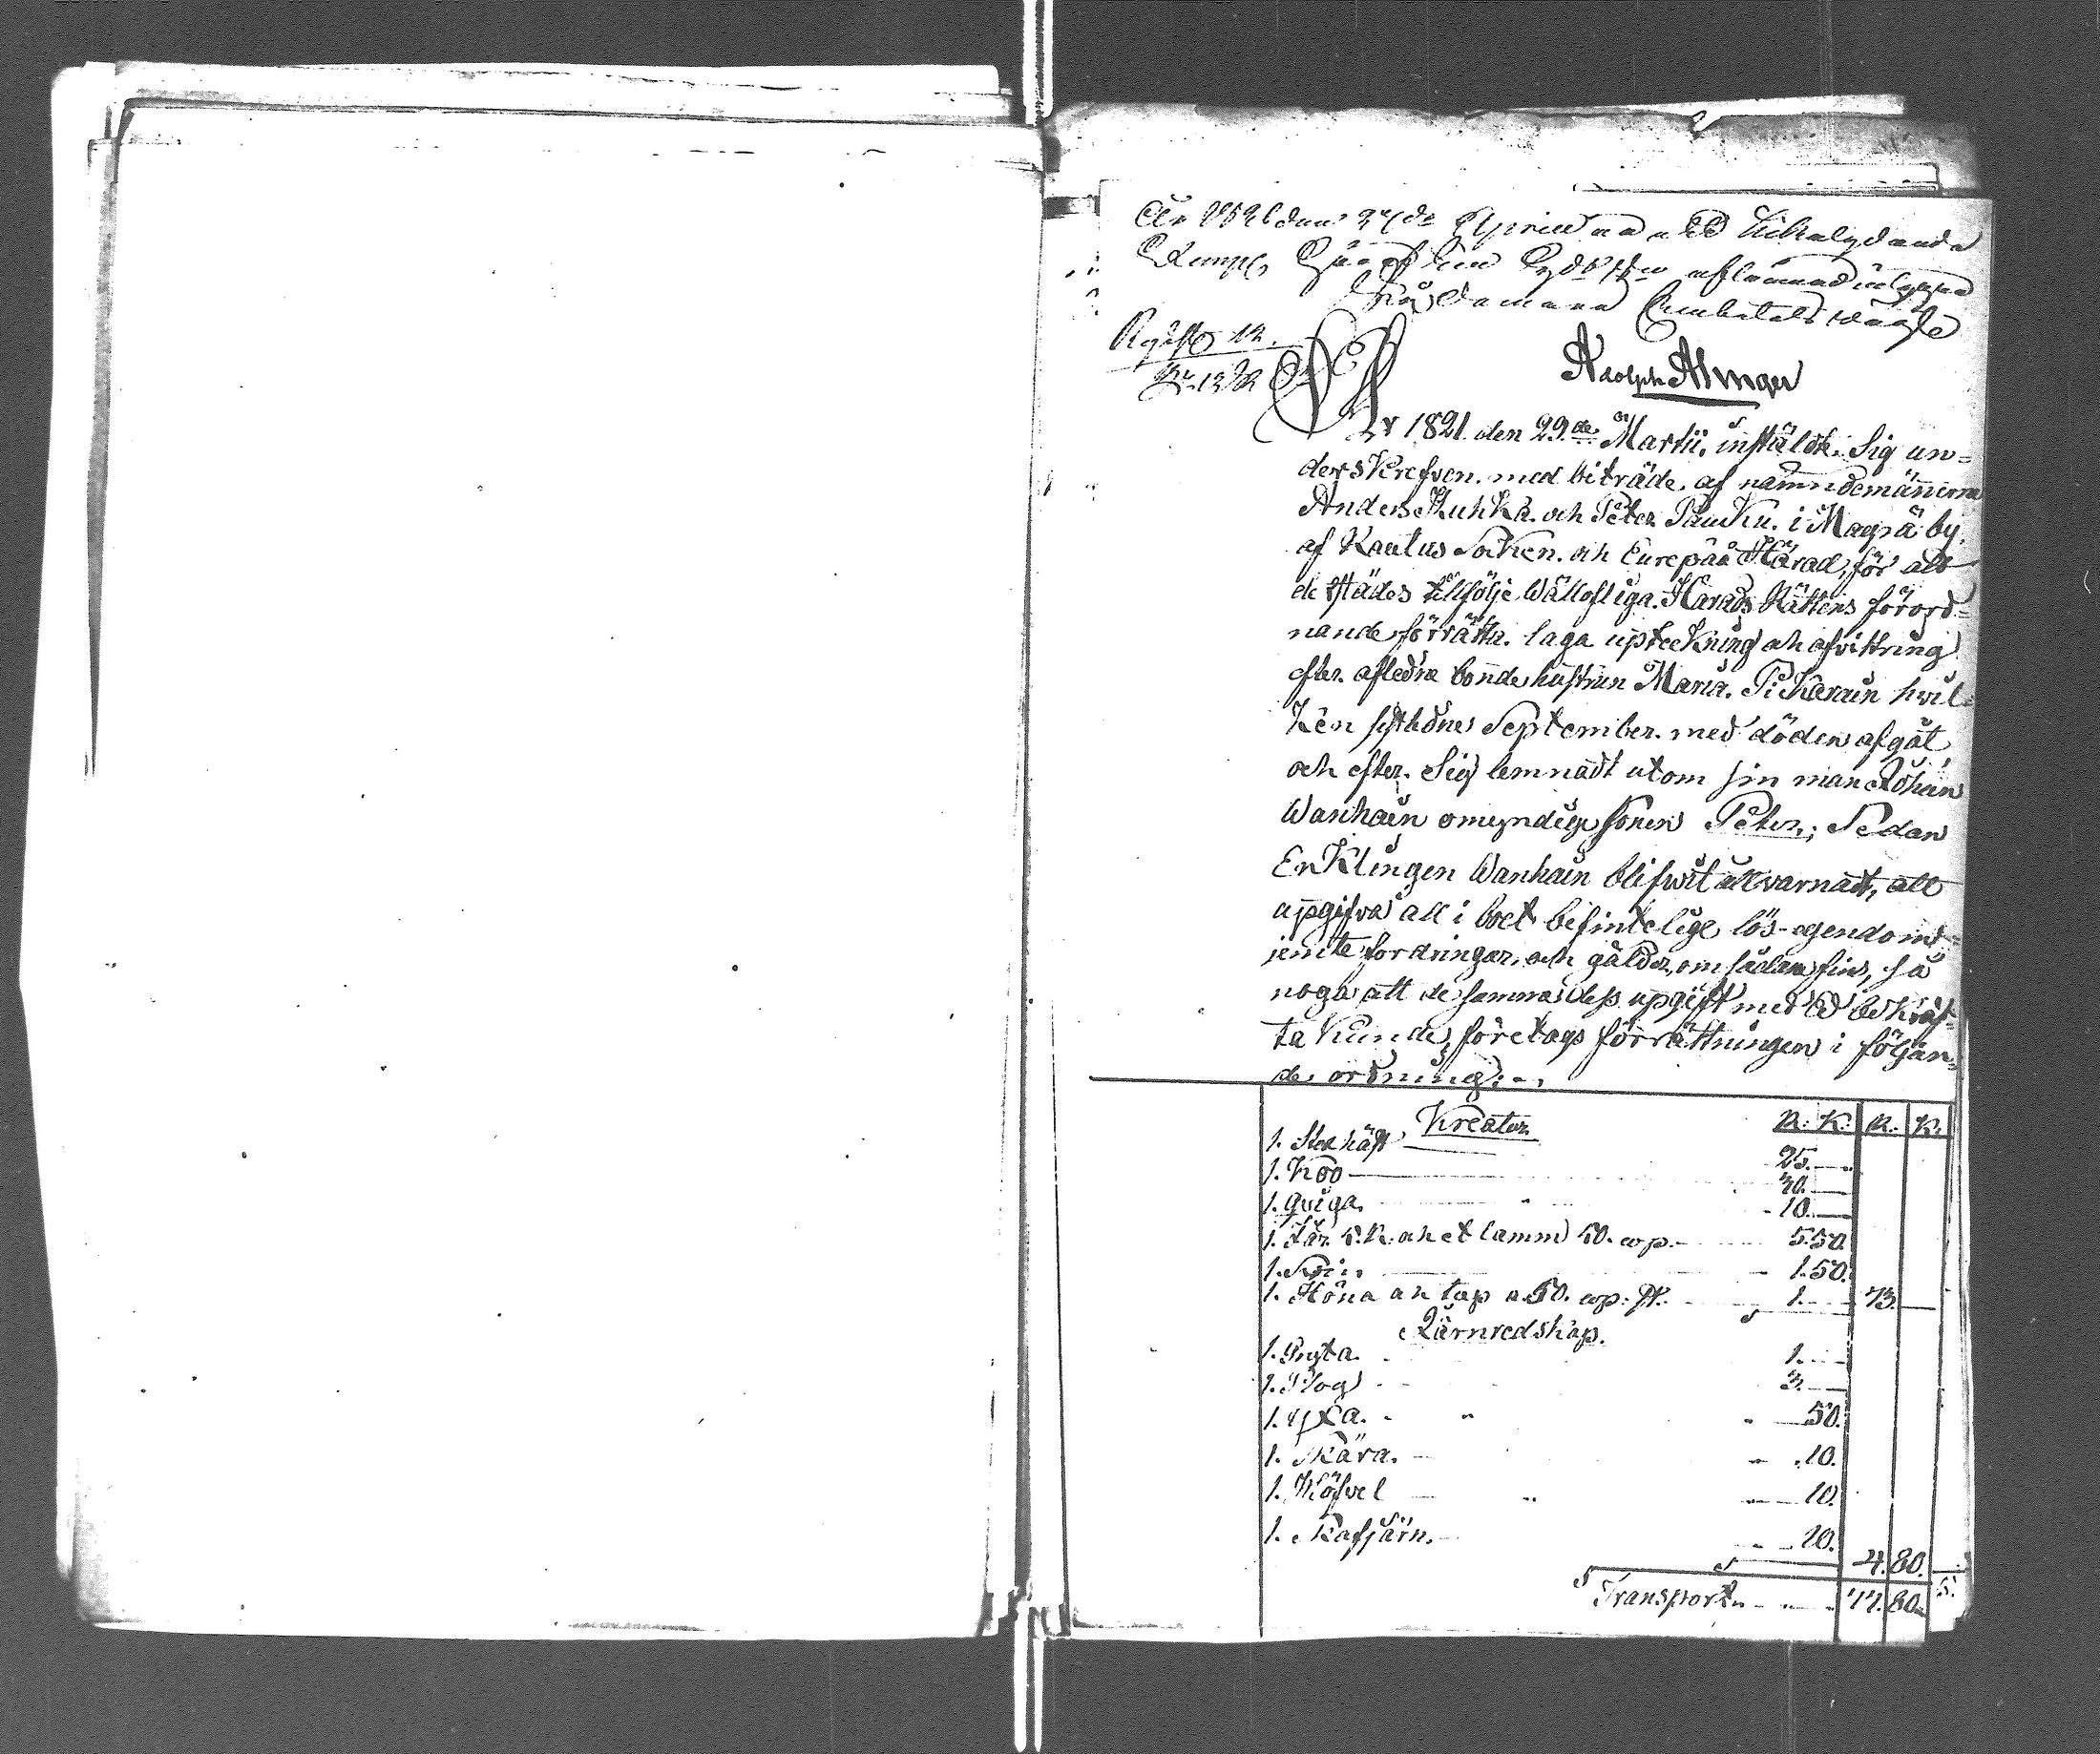 År 1821 den 27de April
Exempl.
Adolph Alinger
År 1821. den 29de Martii, instälde Sig un=
derskrefven. med biträde af nämndemännerna
Anders Kuhka. och Peter Paukku. i Magrä by,
af Kautus Socken. och Eurepää Härad, för att
destädes tillfölje Wällofliga. Härads Rättens förord=
nande, förrätta. laga upteckning och afvittring
efter. afledna bondehustrun Maria. Pikarain hvil=
ken sistledne September. med döden afgåt,
och efter. Sig lemnadt utom sin man Johan
Wanhain omyndige sonen Peter; Sedan
Enklingen Wanhain blifwit allvarnadt, att
upgifva all i boet befintelige lös-egendom
jemte fordringar, och gälder, om sådane fins, så
noga att de samma dess upgift med Ed bekräf=
ta kunde, företogs förrättningen i följan=
de ordning:-,
Kreatur R. K. R. K.
1. Sto häst 25.
1. Koo 30.
1. Qviga. 10.
1. Får 5. R. och et lamm 50. cop. 5.50.
1. Svin 1.50.
1. Höna och tup a. 50. cop. st. 1. 73.
Järnredskap.
1. Gryta. 1.
1. Plog 3.
1. yxa. 50.
1. Skära. 10.
1. Höfvel 10.
1. Rafjärn. 10.
4.80.
Transport 77.80.